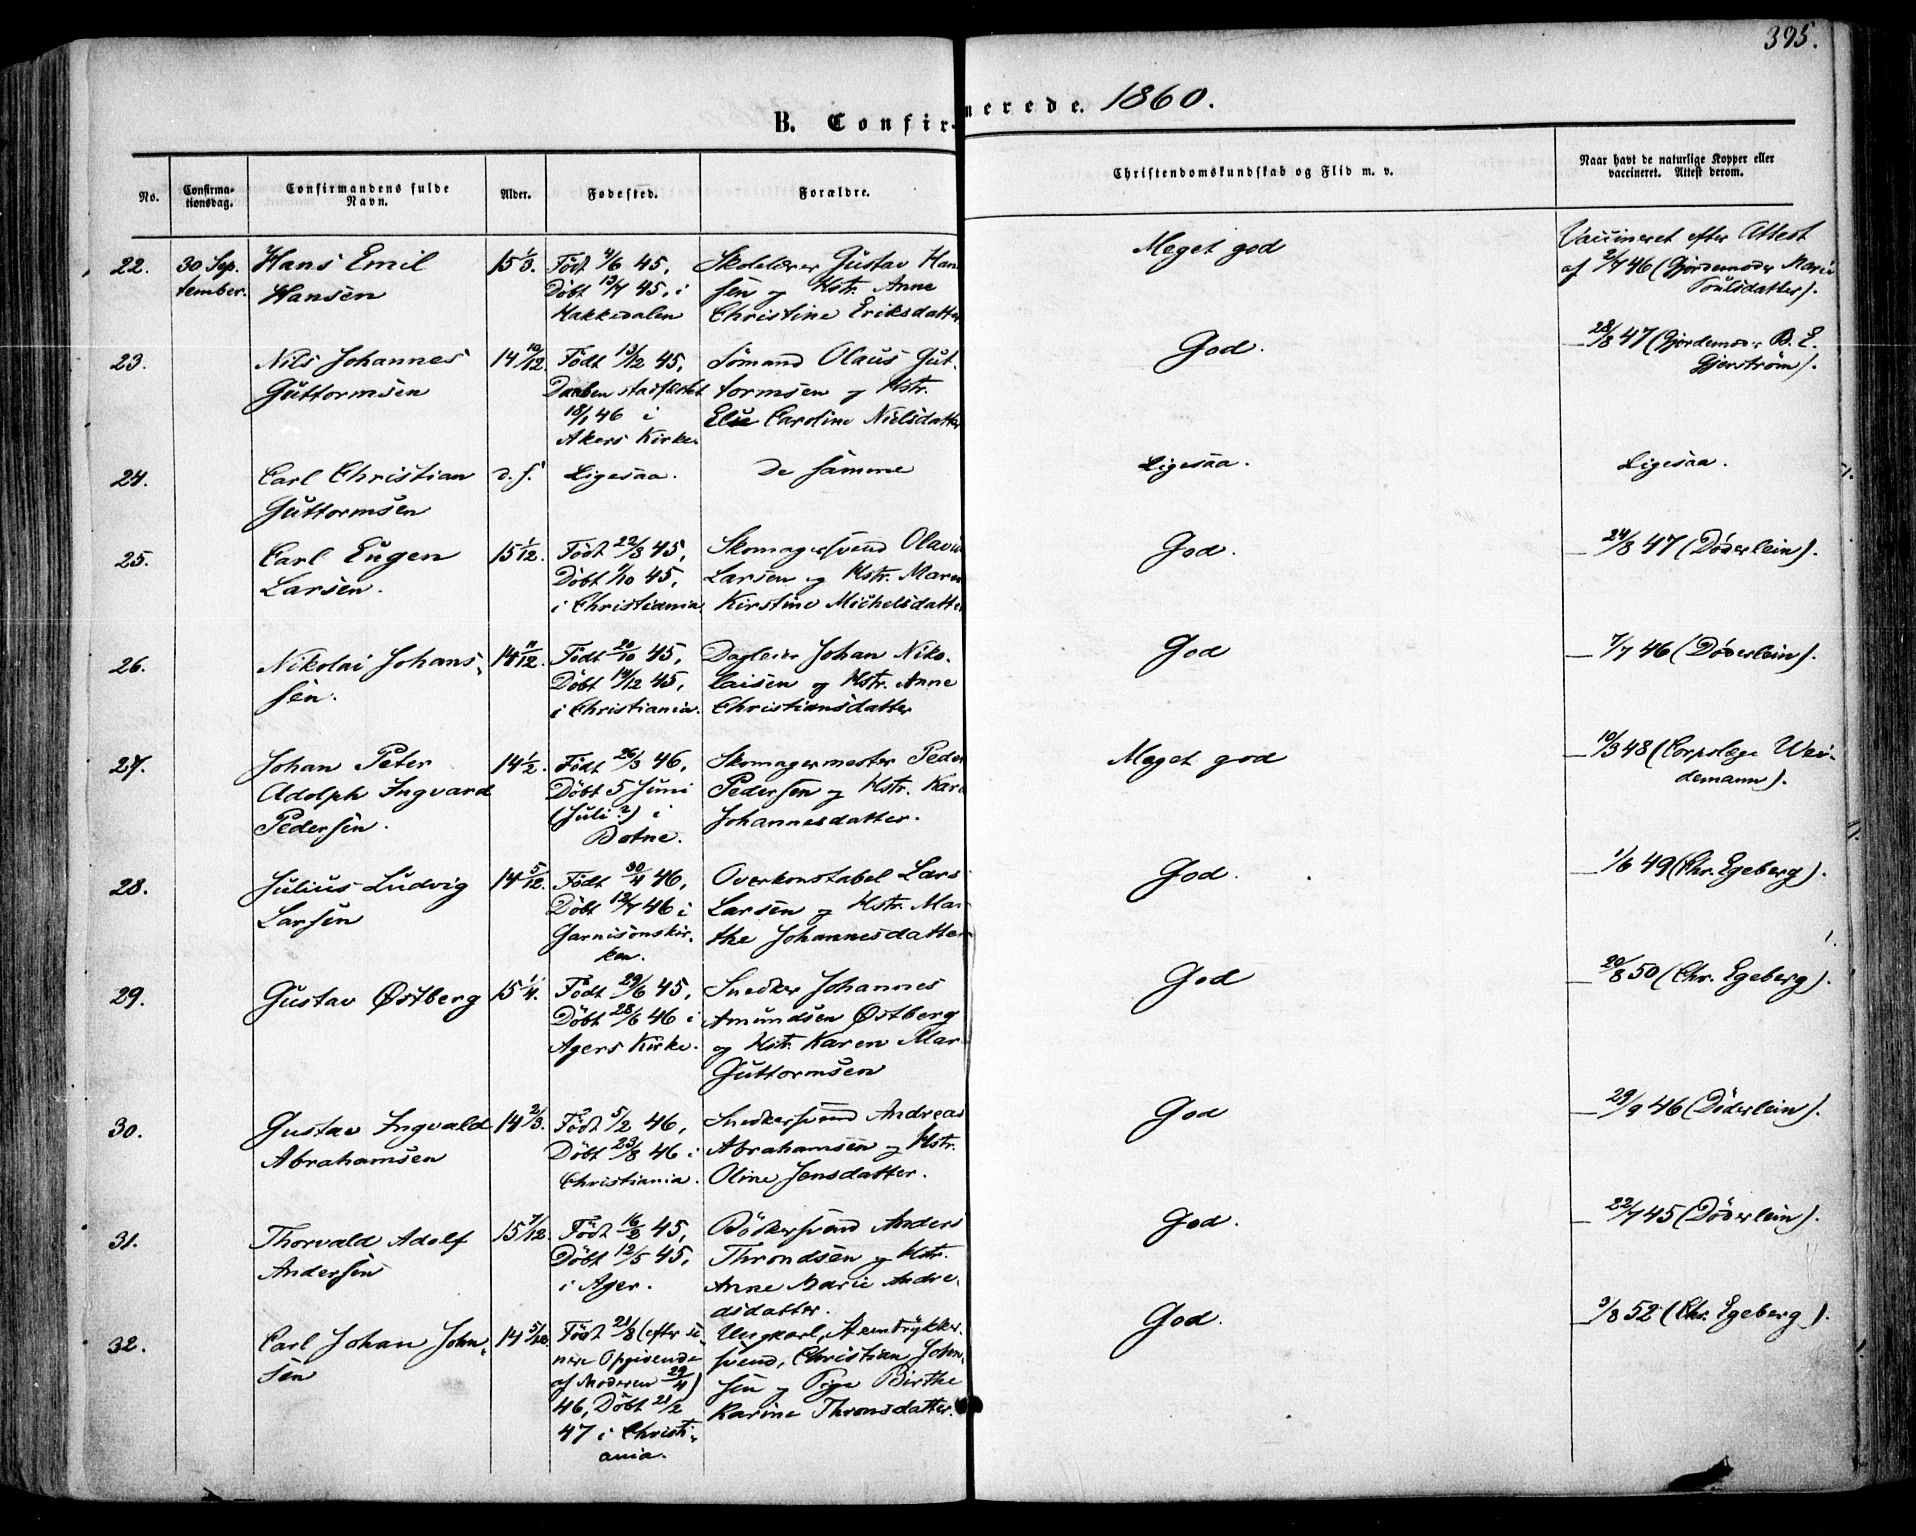 395.
B. Confirmerede. 1860.
No.
Confirmationsdag.
Confirmandens fulde Navn.
Alder.
Fødested.
Forældre.
Christendomskundskab og Flid m. v.
Naar havt de naturlige Kopper eller vaccineret. Attest derom.
22.
30 Sep-
tember.
Hans Emil
Hansen
15 1/3.
Født 4/6 45,
Döbt 13/7 45, i
Hakkedalen
Skolelærer Gustav Han
sen og Hstr. Anne
Christine Eriksdatter
Meget god
Vaccineret efter Attest
af 2/7 46 (Gjordemoder Marie
Poulsdatter).
23.
Nils Johannes
Guttormsen
14 10/12.
Født 13/12 45,
Daaben stadfæstet
18/1 46 i
Akers Kirke
Sömand Olaus Gut-
tormsen og Hstr.
Elise Caroline Nielsdatter
God.
— 28/8 47 (Gjordemoder B. E.
Gjerström).
24.
Carl Christian
Guttormsen
d. s.
Ligesaa.
De samme
Ligesaa.
Ligesaa.
25.
Carl Eugen
Larsen.
15 1/12.
Født 22/8 45,
Döbt 1/10 45,
i Christiania
Skomagersvend Olavus
Larsen og Hstr. Maren
Kirstine Michelsdatter
God.
— 24/8 47 (Døderlein).
26.
Nikolai Johans-
sen.
14 11/12.
Født 20/10 45,
Döbt 14/12 45,
i Christiania.
Dagleier Johan Niko-
laisen og Hstr. Anne
Christiansdatter
God
— 7/7 46 (Døderlein).
27.
Johan Peter
Adolph Ingvard
Pedersen.
14 1/2.
Født 26/3 46,
Döbt 5 Juni
(Juli?) i
Botne.
Skomagermester Peder
Pedersen og Hstr. Kari
Johannesdatter.
Meget god
— 10/3 48 (Corpslæge Wei-
demann).
28.
Julius Ludvig
Larsen
14 5/12.
Födt 30/4 46,
Döbt 12/7 46 i
Garnisonskir-
ken.
Overkonstabel Lars
Larsen og Hstr. Mar-
the Johannesdatter
God.
— 1/6 49 (Chr. Egeberg).
29.
Gustav Østberg
15 1/4.
Födt 29/6 45,
Döbt 28/6 46 i
Agers Kirke.
Snedker Johannes
Amundsen Østberg
og Hstr. Karen Mar
Guttormsen
God
— 20/8 50 (Chr. Egeberg).
30.
Gustav Ingvald
Abrahamsen
14 2/3.
Födt 5/2 46,
Döbt 23/8 46 i
Christiania.
Snedkersvend Andreas
Abrahamsen og Hstr.
Oline Jensdatter.
God
— 29/9 46 (Døderlein).
31.
Thorvald Adolf
Andersen
15 7/12.
Födt 16/2 45,
Döbt 12/5 45,
i Ager.
Bödkersvend Anders
Throndsen og Hstr.
Anne Marie Andre-
asdatter.
God.
— 22/7 45 (Døderlein).
32.
Carl Johan John-
sen
14 5/12.
Født 21/8 (efter se-
nere Opgivende
af Moderen 29/4)
46, Döbt 21/2
47 i Christi-
ania.
Ungkarl, Stentrykker-
svend, Christian John-
sen og Pige Birthe
Karine Thronsdatter.
God.
— 3/8 52 (Chr. Egeberg).